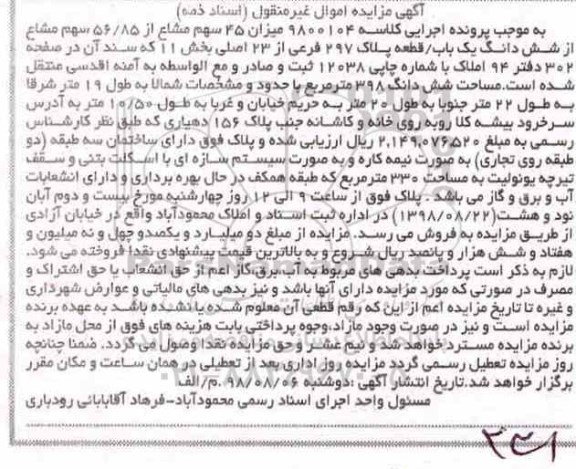 آگهی مزایده اموال غیرمنقول (اسناد ذمه)
به موجب پرونده اجرایی کلاسه ۹۸۰۰۱۰۴ میزان ۴۵ سهم مشاع از ۵۶/۸۵ سهم مشاع
از شش دانگ یک باب/قطعه پلاک ۲۹۷ فرعی از ۲۳ اصلی بخش ۱۱ که سند آن در صفحه
۳۰۲ دفتر ۹۴ املاک با شماره چاپی ۱۲۰۳۸ ثبت و صادر و مع الواسطه به آمنه اقدسی منتقل
شده است.مساحت شش دانگ ۲۷۰ مترمربع با حدود و مشخصات شمالا به طول ۱۹ متر شرقا
به طول ۲۲ متر جنوبا به طول ۲۰ متر به حریم خیابان و غربا به طول ۱۰/۵۰ متر به آدرس
سرخرود بیشه کلا روبه روی خانه و کاشانه جنب پلاک ۱۵۶ دهیاری که طبق نظر کارشناس
رسمی به مبلغ ۲,۱۴۹,۰۷۶,۵۲۰ ریال ارزیابی شده و پلاک فوق دارای ساختمان سه طبقه (دو
طبقه روی تجاری) به صورت نیمه کاره و به صورت سیستم سازه ای با اسکلت بتنی و سقف
تیرچه یونولیت به مساحت ۳۳۰ مترمربع که طبقه همکف در حال بهره برداری و دارای انشعابات
آب و برق و گاز می باشد . پلاک فوق از ساعت ۹ الی ۱۲ روز چهارشنبه مورخ بیست و دوم آبان
نود و هشت(۱۳۹۸/۰۸/۲۲) در اداره ثبت اسناد و املاک محمودآباد واقع در خیابان آزادی
از طریق مزایده به فروش می رسد. مزایده از مبلغ دو میلیارد و یکصدو چهل و نه میلیون و
هفتاد و شش هزار و پانصد ریال شروع و به بالاترین قیمت پیشنهادی نقدا فروخته می شود.
لازم به ذکر است پرداخت بدهی های مربوط به آب،برق،گاز اعم از حق انشعاب یا حق اشتراک و
مصرف در صورتی که مورد مزایده دارای آنها باشد و نیز بدهی های مالیاتی و عوارض شهرداری
و غیره تا تاریخ مزایده اعم از این که رقم قطعی آن معلوم شده یا نشده باشد به عهده برنده
مزایده است و نیز در صورت وجود مازاد،وجوه پرداختی بابت هزینه های فوق از محل مازاد به
برنده مزایده مسترد خواهد شد و نیم عشر و حق مزایده نقدا وصول می گردد. ضمنا چنانچه
روز مزایده تعطیل رسمی گردد مزایده روز اداری بعد از تعطیلی در همان ساعت و مکان مقرر
برگزار خواهد شد.تاریخ انتشار آگهی :دوشنبه ۹۸/۰۸/۰۶ .م/الف
مسئول واحد اجرای اسناد رسمی محمودآباد-فرهاد آقابابائی رودباری